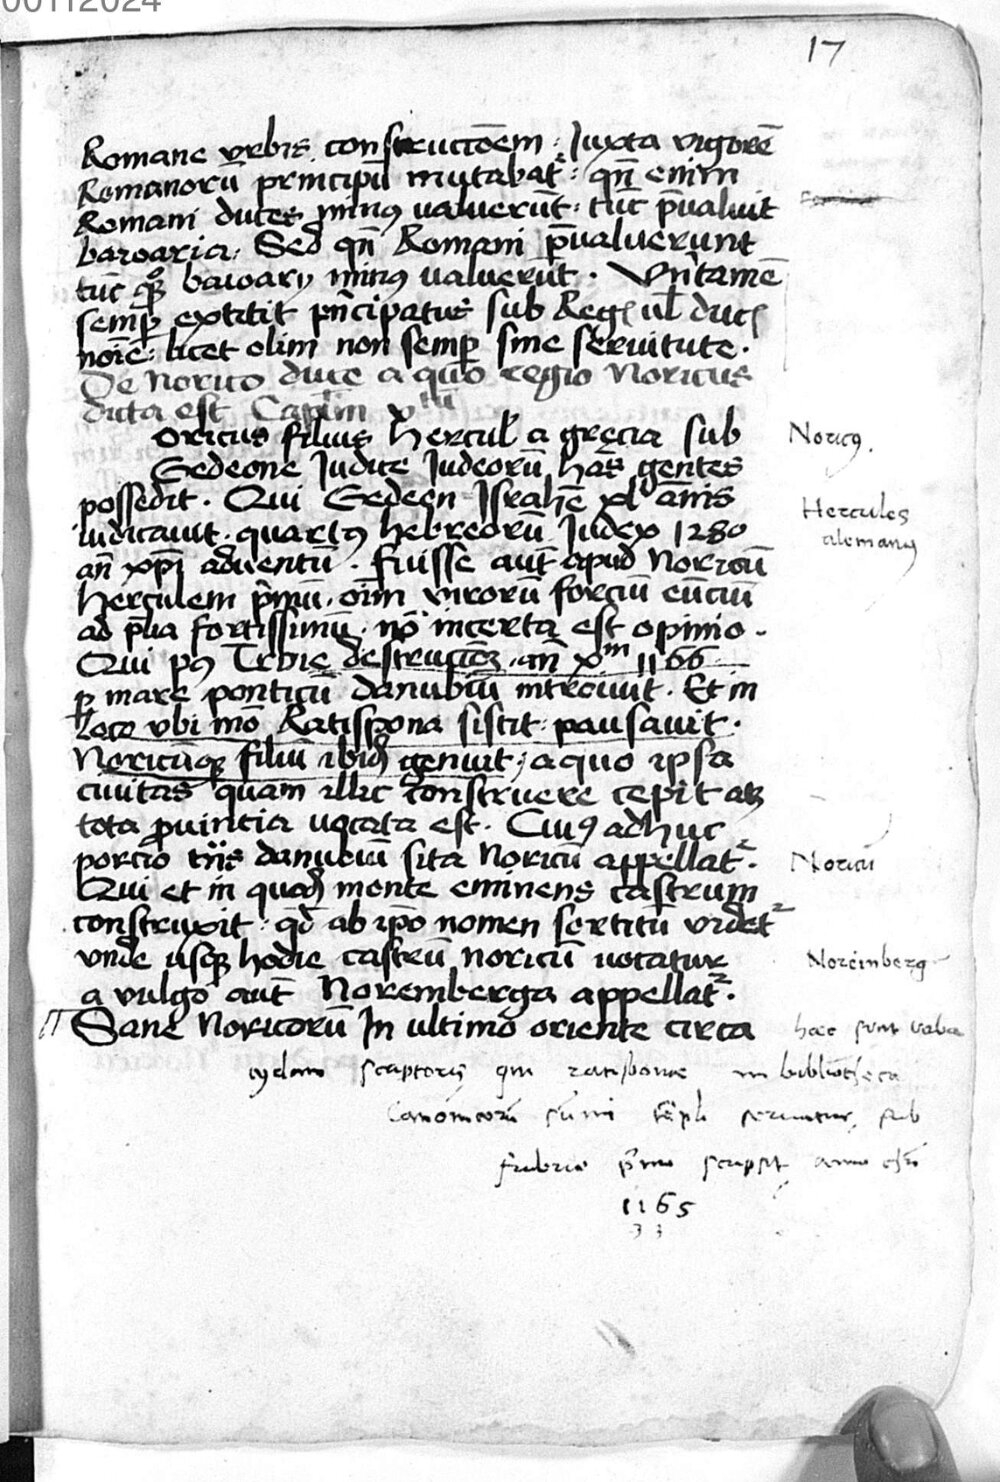 00112024
17
Romane vrbis construccōem · Juxta vigorē
Romanorū principū mutabat᷑ · qn̄ enim
Romani duces minꝰ valuerūt · tūc p̄valuit
bavoaria · Sed qn̄ Romani p̄valuerunt
tūc qꝫ bavoarij minꝰ valuerūt · Vn̄tamē
semꝑ extitit pn̄cipatus sub Reg̃ vl̄ duc̃
noīe · licet olim non semꝑ sine seruitute ·
De Norico duce a quo regio Noricus
dicta est Capl̄m
oricus filius hercul̄ a grecia sub
Noricꝰ
Gedeone Judice Judeorū has gentes
possedit · Qui Gedeon Israhel̄ xl annis
Hercules
iudicauit · quartꝰ hebreorū Judex 1280
alemanꝰ
an̄ xp̄i aduentū · fuisse aut̄ apud Noricū
herculem p̄mū · oīm virorū forciū eūciū
ad p̄lia fortissimū · nō incerta est opinio ·
Qui pꝰ Troie destruccōꝫ · an̄ xm̄ 1166
ꝑ mare ponticū danubiū introiuit · Et in
loco vbi mō Ratispona sistit · pausauit ·
Noricūqꝫ filiū ibid̄ genuit · a quo ipsa
ciuitas quam illic construere cepit atqꝫ
tota ꝓuincia vocata est · Cuiꝰ adhuc
porcio tn̄s danubiū sita Noricū appellat᷑ ·
Noricū
Qui et in quod̄ monte eminens castrum
construxit · qd̄ ab ip̄o nomen sortitū videt᷑
vnde usqꝫ hodie castrū noricū vocatur
Noreinberg
a vulgo aut̄ Noremberga appellat᷑ ·
Sane Noricorū In ultimo oriente circa
haec sunt verba
scriptoris qui ratisponae in bibliotheca
Canonicorū sūmi tēpli seruatur, sub
p̄mo scripsit anno
1165
33